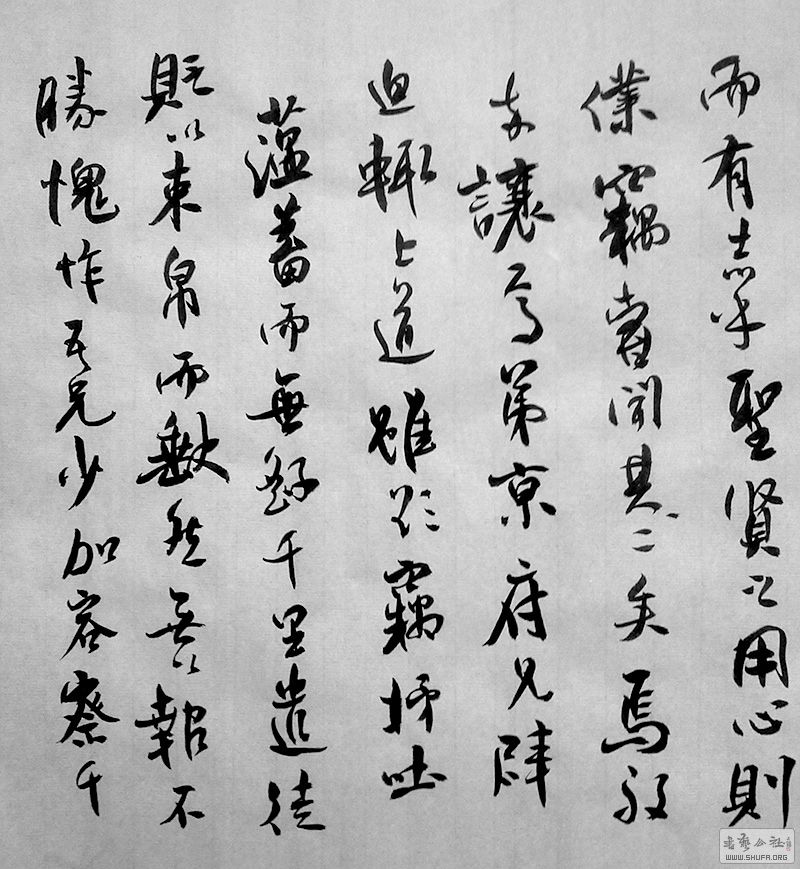 而有志乎聖賢之用心則
僕竊嘗聞其一二矣焉敢
多讓為弟京府兄肆
迫輒上道雖欲竊攄吐
薀蓄而無繇千里遣徒
貺以束帛而歉然無以報不
勝愧怍吾兄少加容察千
書藝公社
WWW.SHUFA.ORG